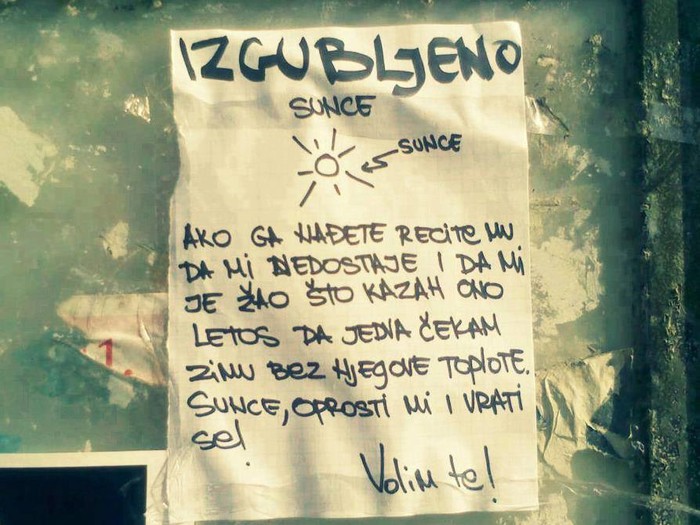 IZGUBLJENO
SUNCE
SUNCE
AKO GA NAĐETE RECITE MU
DA MI NEDOSTAJE I DA MI
JE ŽAO ŠTO KAZAH ONO
LETOS DA JEDVA ČEKAM
ZIMU BEZ NJEGOVE TOPLOTE.
SUNCE, OPROSTI MI I VRATI
SE!
Volim te!
1.